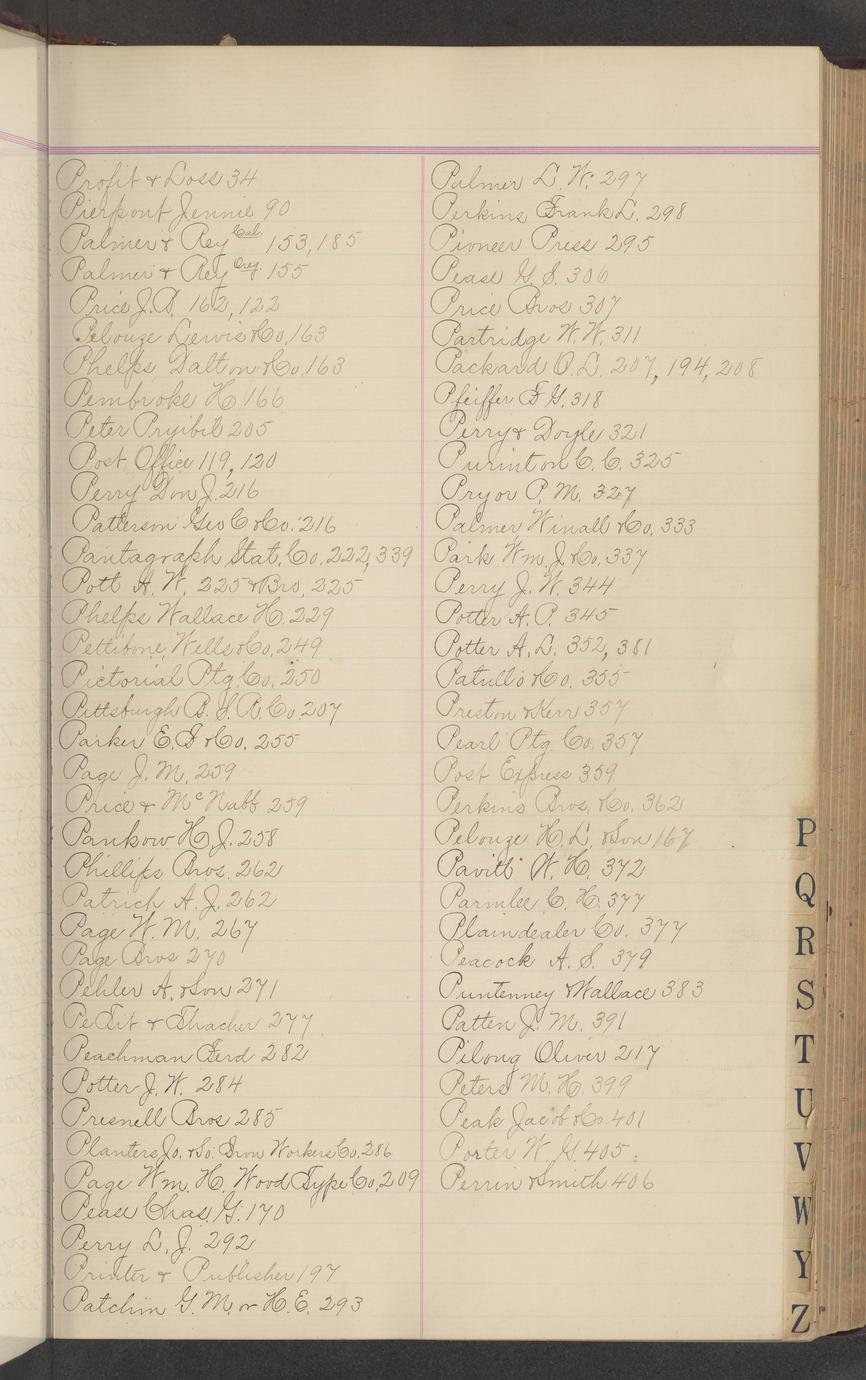 Profit & Loss 34
Pierpont Jennie 90
Palmer & Rey Cal. 153, 185
Palmer & Rey Oreg. 155
Price J. B. 162, 122
Pelouze Lewis & Co. 163
Phelps Dalton & Co. 163
Pembroke H 166
Peter Pryibil 205
Post Office 119, 120
Perry Don J. 216
Patterson Geo C & Co. 216
Pantagraph Stat. Co. 222, 339
Pott A. W. 225 & Bro. 225
Phelps Wallace H. 229
Pettibone, Wells & Co. 249
Pictorial Ptg. Co. 250
Pittsburgh B. S. R. Co 207
Parker E. S & Co. 255
Page J. M. 259
Price & McNabb 259
Pankow H. J. 258
Phillips Bros. 262
Patrich A. J. 262
Page W. M. 267
Page Bros 270
Pehler A. & Son 271
& Thacher 277
Peachman Ferd 282
Potter J. W. 284
Presnell Bros 285
Planters Jo. & So. Iron Workers Co. 286
Page Wm. H. Wood Type Co. 209
Pease Chas. G. 170
Perry L. J. 292
Printer & Publisher 197
Patchin G. M. or H. E. 293
Palmer L. W. 297
Perkins Frank L. 298
Pioneer Press 295
Pease G. S. 306
Price Bros 307
Partridge W. W. 311
Packard O. L. 207, 194, 208
Pfeiffer F G. 318
Perry & Doyle 321
Purinton C. C. 325
Pryor P. M. 327
Palmer Winall & Co. 333
Park Wm. J. & Co. 337
Perry J. W. 344
Potter A. P. 345
Potter A. L. 352, 381
Patullo & Co. 355
Preston & Kerr 357
Pearl Ptg. Co. 357
Post Express 359
Perkins Bros. & Co. 362
Pelouze H. L. & Son 167
Pavitt W. H. 372
Parmlee C. H. 377
Plaindealer Co. 377
Peacock A. S. 379
Puntenney & Wallace 383
Patten J. M. 391
Pilong Oliver 217
Peters M. H. 399
Peak Jacob & Co. 401
Porter W. G. 405
Perrin & Smith 406
P
Q
R
S
T
U
V
W
Y
Z